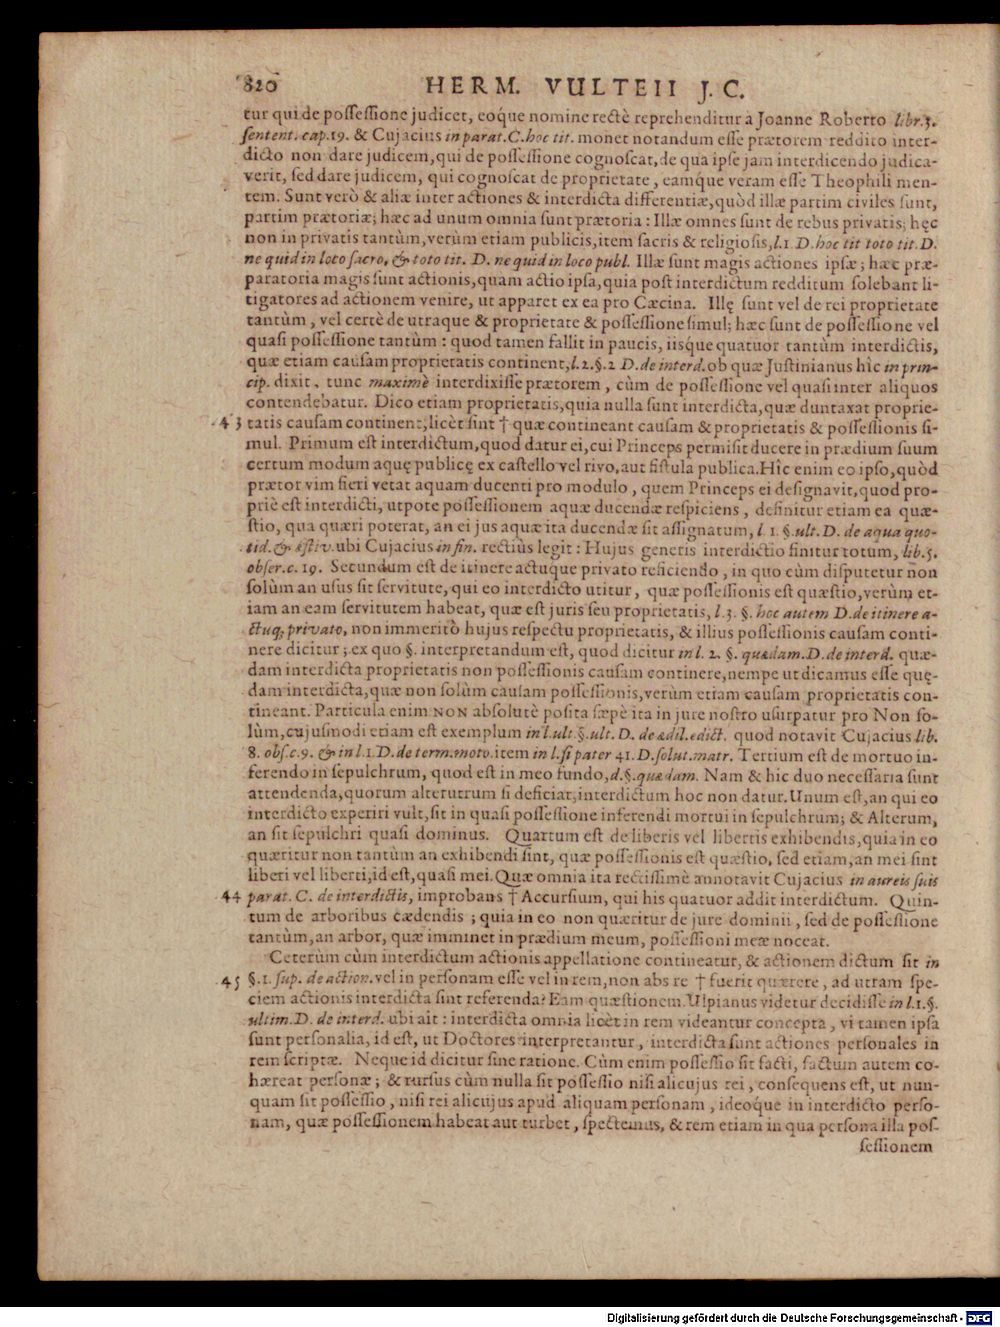 820 HERM. VULTEII J. C.
tur qui de possessione judicet, eoque nomine rectè reprehenditur à Joanne Roberto libr.3.
sentent. cap.19. & Cujacius in parat.C.hoc tit. monet notandum esse prætorem reddito inter-
dicto non dare judicem, qui de possessione cognoscat, de qua ipse jam interdicendo judica-
verit, sed dare judicem, qui cognoscat de proprietate, eamq́ue veram esse Theophili men-
tem. Sunt verò & aliæ inter actiones & interdicta differentiæ, quòd illæ partim civiles sunt,
partim prætoriæ; hæc ad unum omnia sunt prætoria: Illæ omnes sunt de rebus privatis; hęc
non in privatis tantùm, verùm etiam publicis, item sacris & religiosis, l.1. D. hoc tit toto tit. D.
ne quid in loco sacro, & toto tit. D. ne quid in loco publ. Illæ sunt magis actiones ipsæ; hæc præ-
paratoria magis sunt actionis, quam actio ipsa, quia post interdictum redditum solebant li-
tigatores ad actionem venire, ut apparet ex ea pro Cæcina. Illę sunt vel de rei proprietate
tantùm, vel certè de utraque & proprietate & possessione simul; hæc sunt de possessione vel
quasi possessione tantùm: quod tamen fallit in paucis, iisque quatuor tantùm interdictis,
quæ etiam causam proprietatis continent, l.2.§.2 D. de interd. ob quæ Justinianus hîc in prin-
cip. dixit, tunc maximè interdixisse prætorem, cùm de possessione vel quasi inter aliquos
contendebatur. Dico etiam proprietatis, quia nulla sunt interdicta, quæ duntaxat proprie-
43 tatis causam continent, licèt sint † quæ contineant causam & proprietatis & possessionis si-
mul. Primum est interdictum, quod datur ei, cui Princeps permisit ducere in prædium suum
certum modum aquę publicę ex castello vel rivo, aut fistula publica. Hîc enim eo ipso, quòd
prætor vim fieri vetat aquam ducenti pro modulo, quem Princeps ei designavit, quod pro-
priè est interdicti, utpote possessionem aquæ ducendæ respiciens, definitur etiam ea quæ-
stio, qua quæri poterat, an ei jus aquæ ita ducendæ sit assignatum, l 1. §. ult. D. de aqua quo-
tid. & æstiv. ubi Cujacius in fin. rectiùs legit: Hujus generis interdictio finitur totum, lib.5.
obser.c. 19. Secundum est de itinere actuque privato reficiendo, in quo cùm disputetur non
solùm an usus sit servitute, qui eo interdicto utitur, quæ possessionis est quæstio, verùm et-
iam an eam servitutem habeat, quæ est juris seu proprietatis, l.3. §. hoc autem D. de itinere a-
ctuq; privato, non immeritò hujus respectu proprietatis, & illius possessionis causam conti-
nere dicitur; ex quo §. interpretandum est, quod dicitur in l. 2. §. quædam. D. de interd. quæ-
dam interdicta proprietatis non possessionis causam continere, nempe ut dicamus esse quę-
dam interdicta, quæ non solùm causam possessionis, verùm etiam causam proprietatis con-
tineant. Particula enim NON absolutè posita sæpè ita in jure nostro usurpatur pro Non so-
lùm, cujusmodi etiam est exemplum in l.ult.§.ult. D. de ædil.edict. quod notavit Cujacius lib.
8. obs.c.9. & in l.1 D. de term.moto. item in l. si pater 41. D. solut.matr. Tertium est de mortuo in-
ferendo in sepulchrum, quod est in meo fundo, d.§. quædam. Nam & hic duo necessaria sunt
attendenda, quorum alterutrum si deficiat, interdictum hoc non datur. Unum est, an qui eo
interdicto experiri vult, sit in quasi possessione inferendi mortui in sepulchrum; & Alterum,
an sit sepulchri quasi dominus. Quartum est de liberis vel libertis exhibendis, quia in eo
quæritur non tantùm an exhibendi sint, quæ possessionis est quæstio, sed etiam, an mei sint
liberi vel liberti, id est, quasi mei. Quæ omnia ita rectissimè annotavit Cujacius in aureis suis
44 parat. C. de interdictis, improbans † Accursium, qui his quatuor addit interdictum. Quin-
tum de arboribus cædendis; quia in eo non quæritur de jure dominii, sed de possessione
tantùm, an arbor, quæ imminet in prædium meum, possessioni meæ noceat.
Ceterùm cùm interdictum actionis appellatione contineatur, & actionem dictum sit in
45 §.1. sup. de action. vel in personam esse vel in rem, non abs re † fuerit quærere, ad utram spe-
ciem actionis interdicta sint referenda? Eam quæstionem Ulpianus videtur decidisse in l.1.§.
ultim. D. de interd. ubi ait: interdicta omnia licèt in rem videantur concepta, vi tamen ipsa
sunt personalia, id est, ut Doctores interpretantur, interdicta sunt actiones personales in
rem scriptæ. Neque id dicitur sine ratione. Cùm enim possessio sit facti, factum autem co-
hæreat personæ; & rursus cùm nulla sit possessio nisi alicujus rei, consequens est, ut nun-
quam sit possessio, nisi rei alicujus apud aliquam personam, ideoque in interdicto perso-
nam, quæ possessionem habeat aut turbet, spectemus, & rem etiam in qua persona illa pos-
sessionem
Digitalisierung gefördert durch die Deutsche Forschungsgemeinschaft - DFG